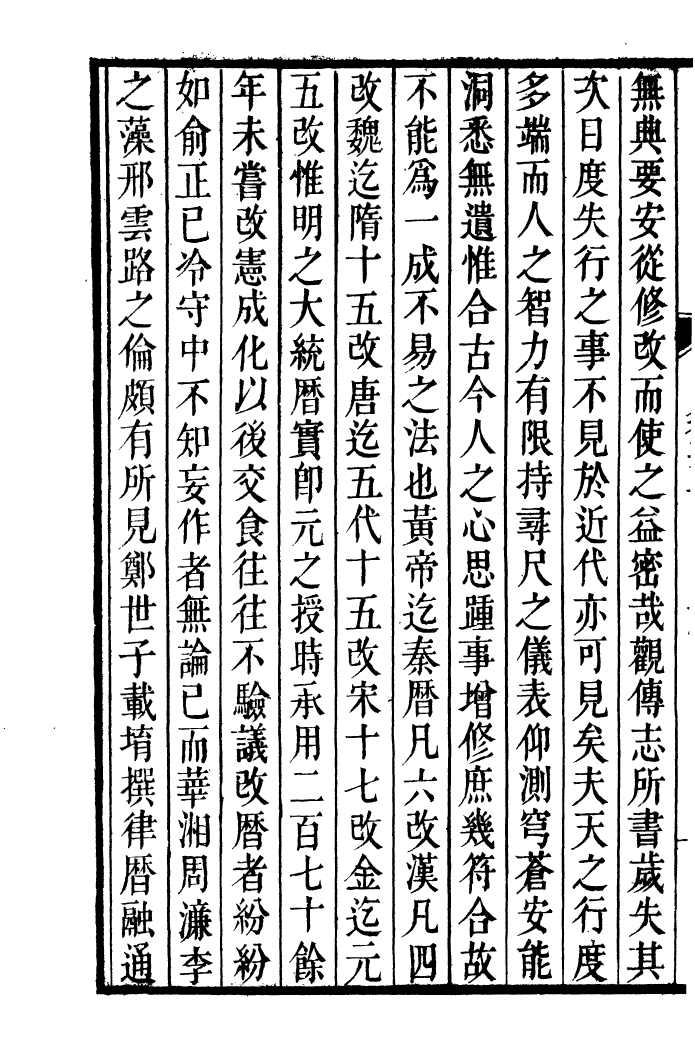 無典要安從修改而使之益密哉觀傳志所書歲失其
次日度失行之事不見於近代亦可見矣夫天之行度
多端而人之智力有限持尋尺之儀表仰測穹蒼安能
洞悉無遺惟合古今人之心思踵事增修庶幾符合故
不能爲一成不易之法也黃帝迄秦曆凡六改漢凡四
改魏迄隋十五改唐迄五代十五改宋十七改金迄元
五改惟明之大統曆實卽元之授時承用二百七十餘
年未嘗改憲成化以後交食往往不驗議改曆者紛紛
如俞正已冷守中不知妄作者無論已而華湘周濂李
之藻邢雲路之倫頗有所見鄭世子載堉撰律曆融通